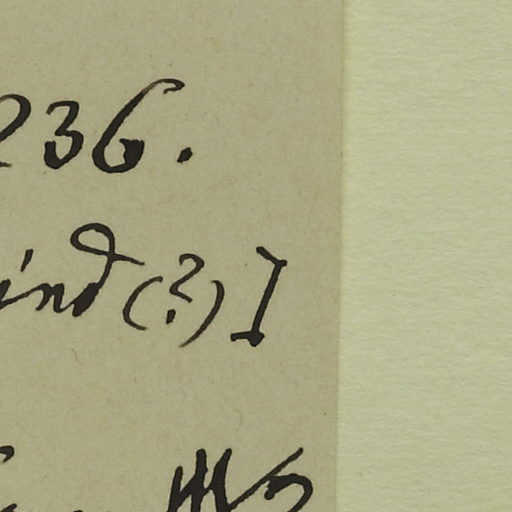 236.
ind (?)]